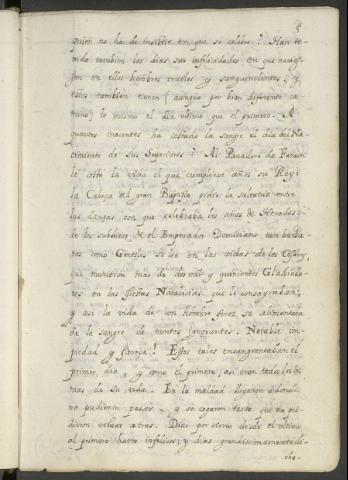 5
quien no ha de insistir en que se celebre? Han te-
nido tambien los dias sus infelicidades en que nacies-
sen en ellos hombres crueles y sanguinolentos, y
estos tambien tienen (aunque por bien diferente ca-
mino) lo mismo el dia ultimo que el primero. A
quantos inocentes ha costado la sangre el dia del Na-
cimiento de sus Superiores? Al Panadero de Faraon
le costó la vida el que cumpliesse años su Rey:
la Cabeça del gran Baptista pidió la saltatriz entre
las danças con que celebraba los años de Herodes:
de los subditos de el Emperador Domiciano tan barba-
ros como Gentiles se lee en las vidas de los Cesares,
que murieron mas de dos mil y quinientos Gladiado-
res en las fiestas Natalicias que le consagraban;
y asi la vida de un hombre feroz se alimentaba
de la sangre de tantos ignorantes. Notable im-
piedad y fiereça! Estos tales ensangrentaban el
primer dia, y como el primero, asi eran todos los de-
mas de su vida. En la maldad llegaron adonde
no pudieron pasar, y se cegaron tanto que no pu-
dieron volver atras. Dias por cierto desde el ultimo
al primero harto infelices; y dias grandissimamente di-
cho-